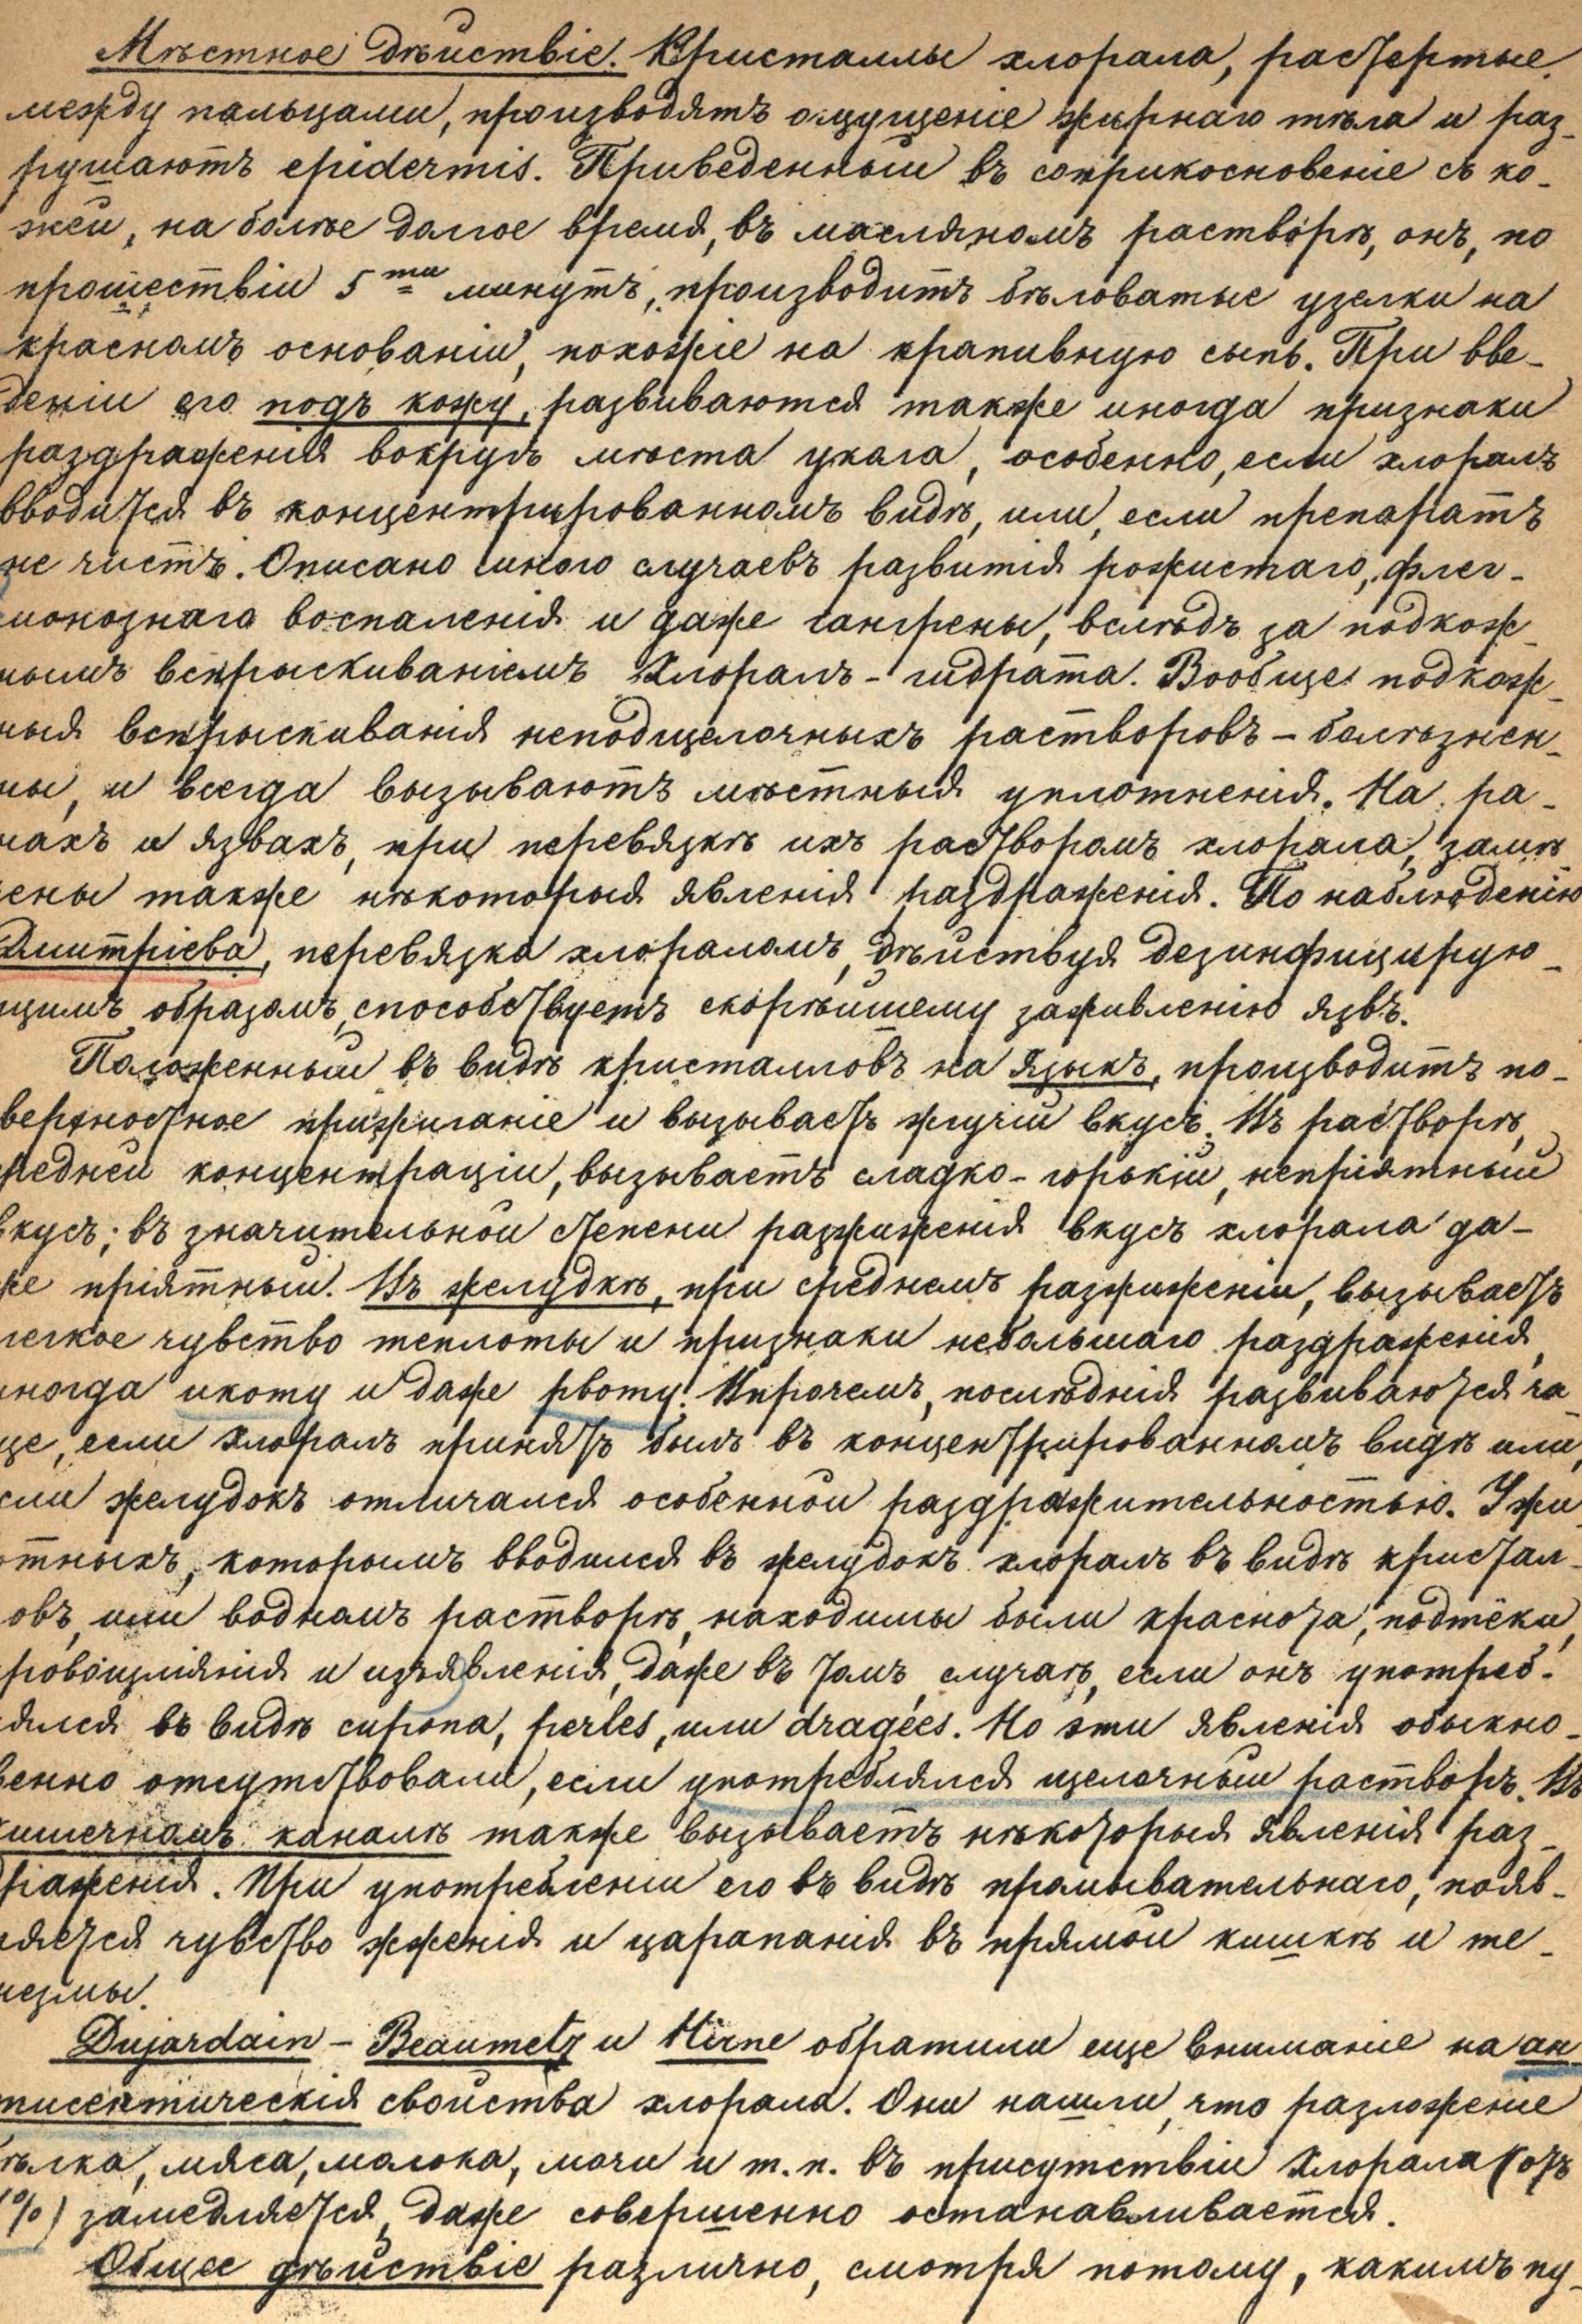 Мѣстное дѣйствіе. Кристаллы хлорала, растертые
между пальцами, производятъ ощущеніе жирнаго тѣла и раз-
рушаютъ epidermis. Приведенный въ соприкосновеніе съ ко-
жей, на болѣе долгое время, въ масляномъ растворѣ, онъ, по
прошествіи 5ти минутъ, производитъ бѣловатые узелки на
красномъ основаніи, похожіе на крапивную сыпь. При вве-
деніи его подъ кожу, развиваются также иногда признаки
раздраженія вокругъ мѣста укола, особенно, если хлоралъ
вводится въ концентрированномъ видѣ, или, если препаратъ
не чистъ. Описано много случаевъ развитія рожистаго, флег-
монознаго воспаленія и даже гангрены, вслѣдъ за подкож-
нымъ вспрыскиваніемъ Хлоралъ-гидрата. Вообще подкож-
ныя вспрыскиванія неподщелочныхъ растворовъ – болѣзнен-
ны, и всегда вызываютъ мѣстныя уплотненія. На ра-
нахъ и язвахъ, при перевязкѣ ихъ растворомъ хлорала, замѣ-
чены также нѣкоторыя явленія раздраженія. По наблюденію
Дмитріева, перевязка хлораломъ, дѣйствуя дезинфицирую-
щимъ образомъ, способствуетъ скорѣйшему заживленію язвъ.
Положенный въ видѣ кристалловъ на языкъ, производитъ по-
верхностное прижиганіе и вызываетъ жгучій вкусъ. Въ растворѣ,
средней концентраціи, вызываетъ сладко-горькій, непріятный
вкусъ; въ значительной степени разжиженія вкусъ хлорала да-
же пріятный. Въ желудкѣ, при среднемъ разжиженіи, вызываетъ
легкое чувство теплоты и признаки небольшаго раздраженія,
иногда икоту и даже рвоту. Впрочемъ, послѣднія развиваются ча-
ще, если хлоралъ принятъ былъ въ концентрированномъ видѣ или,
если желудокъ отличался особенной раздражительностью. У жи-
вотныхъ, которымъ вводился въ желудокъ хлоралъ въ видѣ кристал-
ловъ, или водномъ растворѣ, находимы были краснота, подтёки,
кровоизліянія и изъявленія, даже въ томъ случаѣ, если онъ употреб-
лялся въ видѣ сиропа, perles, или dragées. Но эти явленія обыкно-
венно отсутствовали, если употреблялся щелочный растворъ. Въ
кишечномъ каналѣ также вызываетъ нѣкоторыя явленія раз-
драженія. При употребленіи его въ видѣ промывательнаго, появ-
ляется чувство жженія и царапанія въ прямой кишкѣ и те-
незмы.
Dujardain – Beaumetz и Hirne обратили еще вниманіе на ан-
тисептическія свойства хлорала. Они нашли, что разложеніе
бѣлка, мяса, молока, мочи и т. п. въ присутствіи Хлорала (отъ
1%) замедляется, даже совершенно останавливается.
Общее дѣйствіе различно, смотря потому, какимъ пу-